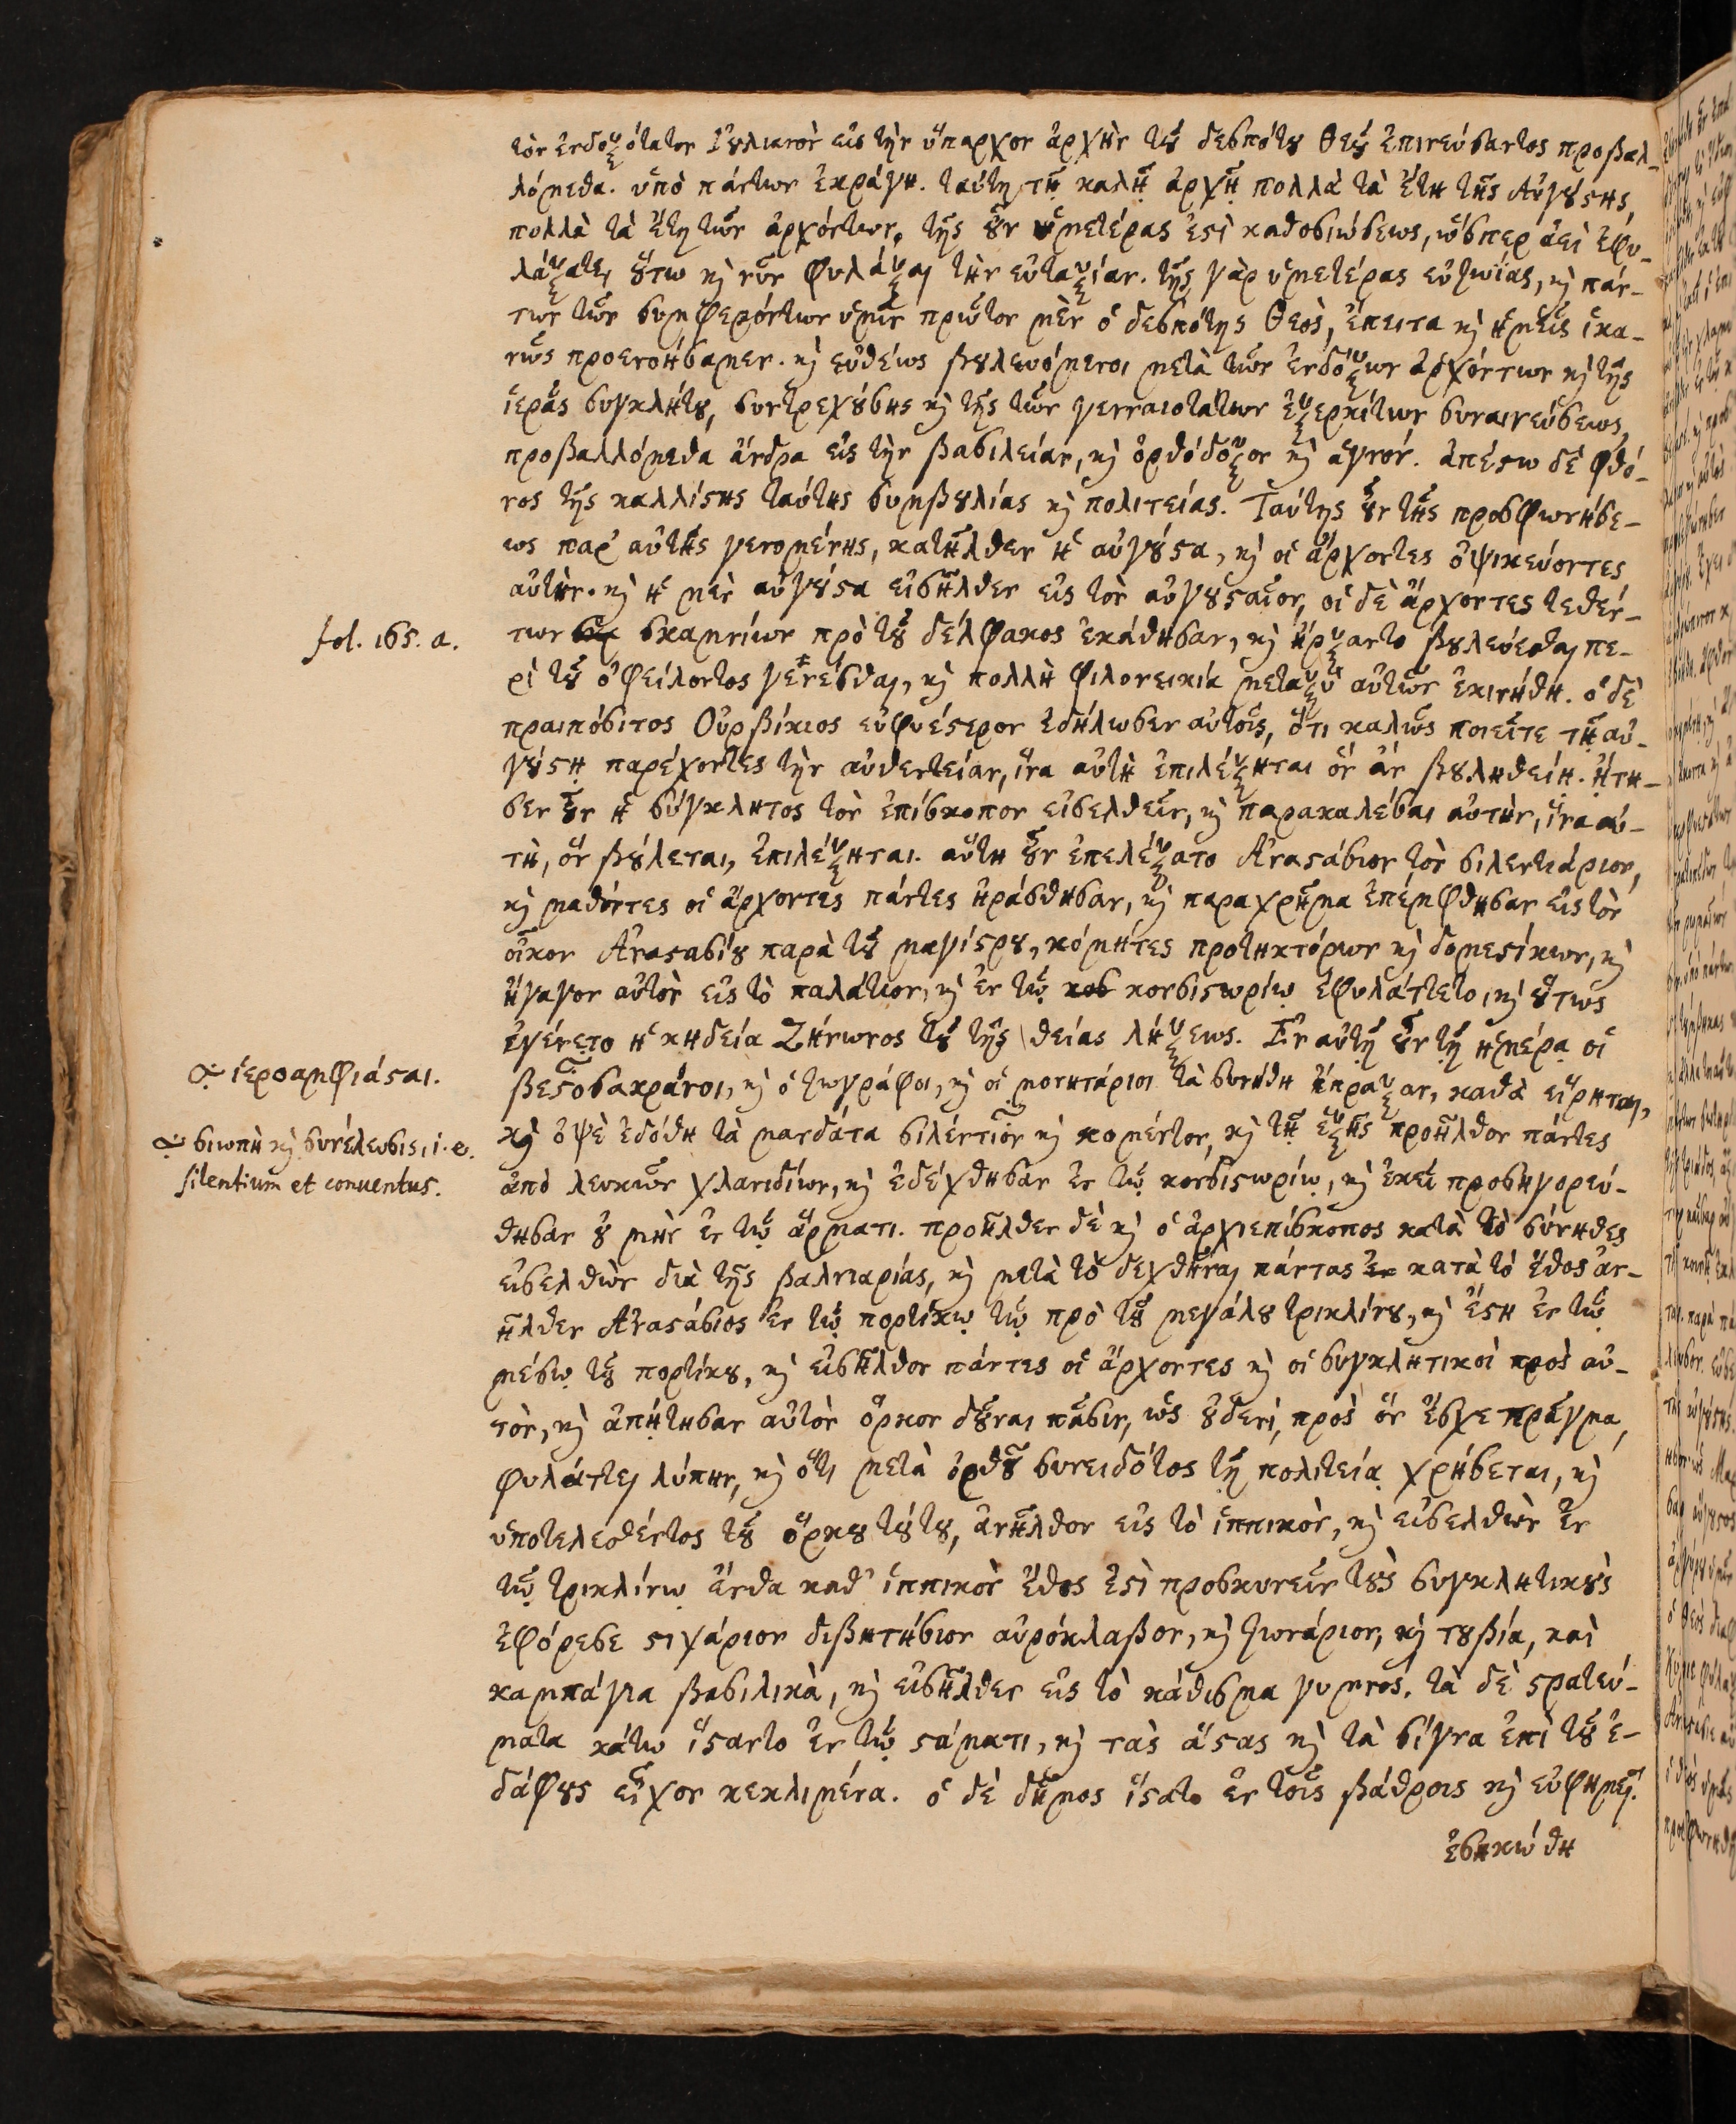 τὸν ἐνδοξότατον Ἰουλιανὸν εἰς τὴν ὕπαρχον ἀρχὴν τοῦ δεσπότου Θεοῦ ἐπινεύσαντος προβαλ-
λόμεθα. ὑπὸ πάντων ἐκράγη. ταύτῃ τῇ καλῇ ἀρχῇ πολλὰ τὰ ἔτη τῆς Αὐγούστης,
πολλὰ τὰ ἔτη τῶν ἀρχόντων. τῆς οὖν ὑμετέρας ἐστὶ καθοσιώσεως, ὥσπερ ἀεὶ ἐφυ-
λάξατε, οὕτω καὶ νῦν φυλάξαι τὴν εὐταξίαν. τῆς γὰρ ὑμετέρας εὐζωίας, καὶ πάν-
των τῶν συμφερόντων ὑμῖν πρῶτον μὲν ὁ δεσπότης Θεὸς, ἔπειτα καὶ ἡμεῖς ἱκα-
νῶς προενοήσαμεν. καὶ εὐθέως βουλευόμενοι μετὰ τῶν ἐνδόξων ἀρχόντων καὶ τῆς
ἱερᾶς συγκλήτου, συντρεχούσης καὶ τῆς τῶν γενναιοτάτων ἐξερκίτων συναινεύσεως,
προβαλλόμεθα ἄνδρα εἰς τὴν βασιλείαν, καὶ ὀρθόδοξον καὶ ἁγνόν. ἀπέστω δὲ φθό-
νος τῆς καλλίστης ταύτης συμβουλίας καὶ πολιτείας. Ταύτης οὖν τῆς προσφωνήσε-
ως παρ' αὐτῆς γενομένης, κατῆλθεν ἡ αὐγούστα, καὶ οἱ ἄρχοντες ὀψικεύοντες
αὐτήν. καὶ ἡ μὲν αὐγούστα εἰσῆλθεν εἰς τὸν αὐγουσταῖον, οἱ δὲ ἄρχοντες τεθέν-
fol. 165. a.
των σκαμνίων πρὸ τοῦ δέλφακος ἐκάθησαν, καὶ ἤρξαντο βουλεύεσθαι πε-
ρὶ τοῦ ὀφείλοντος γενέσθαι, καὶ πολλὴ φιλονεικία μεταξὺ αὐτῶν ἐκινήθη. ὁ δὲ
πραιπόσιτος Οὐρβίκιος εὐφυέστερον ἐδήλωσεν αὐτοῖς, ὅτι καλῶς ποιεῖτε τῇ αὐ-
γούστῃ παρέχοντες τὴν αὐθεντείαν, ἵνα αὐτὴ ἐπιλέξηται ὃν ἂν βουληθείη. ᾔτη-
σεν οὖν ἡ σύγκλητος τὸν ἐπίσκοπον εἰσελθεῖν, καὶ παρακαλέσαι αὐτὴν, ἵνα αὐ-
τὴ, ὃν βούλεται, ἐπιλέξηται. αὕτη οὖν ἐπελέξατο Ἀναστάσιον τὸν σιλεντιάριον,
καὶ μαθόντες οἱ ἄρχοντες πάντες ἠράσθησαν, καὶ παραχρῆμα ἐπέμφθησαν εἰς τὸν
οἶκον Ἀναστασίου παρὰ τοῦ μαγίστρου, κόμητες προτηκτόρων καὶ δομεστίκων, καὶ
ἤγαγον αὐτὸν εἰς τὸ παλάτιον, καὶ ἐν τῷ κονσιστωρίῳ ἐφυλάττετο, καὶ οὕτως
ἐγένετο ἡ κηδεία Ζήνωνος τοῦ τῆς θείας λήξεως. Ἐν αὐτῇ οὖν τῇ ἡμέρᾳ οἱ
ἱεροαμφιάσται.
βεστοσακράνοι, καὶ ὁ ζωγράφοι, καὶ οἱ μονητάριοι τὰ συνήθη ἔπραξαν, καθὰ εἴρηται,
καὶ ὀψὲ ἐδόθη τὰ μανδάτα σιλέντιον καὶ κομέντον, καὶ τῇ ἑξῆς προῆλθον πάντες
σιωπὴ καὶ συνέλευσις, i. e.
silentium et conuentus.
ἀπὸ λευκῶν χλανιδίων, καὶ ἐδέχθησαν ἐν τῷ κονσιστωρίῳ, καὶ ἐκεῖ προσηγορεύ-
θησαν οὐ μὴν ἐν τῷ ἅρματι. προῆλθεν δὲ καὶ ὁ ἀρχιεπίσκοπος κατὰ τὸ σύνηθες
εἰσελθὼν διὰ τῆς βαλνιαρίας, καὶ μετὰ τὸ δεχθῆναι πάντας κατὰ τὸ ἔθος ἀν-
ῆλθεν Ἀναστάσιος ἐν τῷ πορτίκῳ τῷ πρὸ τοῦ μεγάλου τρικλίνου, καὶ ἔστη ἐν τῷ
μέσῳ τοῦ πορτίκου, καὶ εἰσῆλθον πάντες οἱ ἄρχοντες καὶ οἱ συγκλητικοὶ πρὸς αὐ-
τὸν, καὶ ἀπῄτησαν αὐτὸν ὅρκον δοῦναι πᾶσιν, ὡς οὐδενὶ, πρὸς ὃν ἔσχε πρᾶγμα,
φυλάττει λύπην, καὶ ὅτι μετὰ ὀρθοῦ συνειδότος τῇ πολιτείᾳ χρήσεται, καὶ
ὑποτελεσθέντος τοῦ ὅρκου τούτου, ἀνῆλθον εἰς τὸ ἱππικὸν, καὶ εἰσελθὼν ἐν
τῷ τρικλίνῳ ἔνθα καθ' ἱππικὸν ἔθος ἐστὶ προσκυνεῖν τοὺς συγκλητικοὺς
ἐφόρεσε στιχάριον διβητήσιον αὐρόκλαβον, καὶ ζωνάριον, καὶ τουβία, καὶ
καμπάγια βασιλικὰ, καὶ εἰσῆλθεν εἰς τὸ κάθισμα γυμνός. τὰ δὲ στρατεύ-
ματα κάτω ἵσταντο ἐν τῷ στάματι, καὶ τὰς ἄστας καὶ τὰ σίγνα ἐπὶ τοῦ ἐ-
δάφους εἶχον κεκλιμένα. ὁ δὲ δῆμος ἵστατο ἐν τοῖς βάθροις καὶ εὐφήμει.
ἐσηκώθη